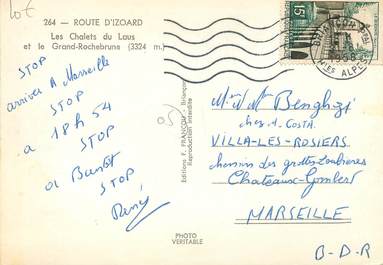 10€
264 — ROUTE D'IZOARD
Les Chalets du Laus
et le Grand-Rochebrune (3324 m.)
STOP
arrives A Marseille
STOP
a 18h 54
STOP
a Bientot
STOP
René
Editions F. FRANCOU - Briançon
Reproduction interdite
PHOTO
VERITABLE
15F
BRIANÇON
Htes ALPES
Benghozi
chez M. COSTA
VILLA-LES-ROSIERS
chemin des grottes Loubieres
Chateaux-Gombert
MARSEILLE
B-D-R